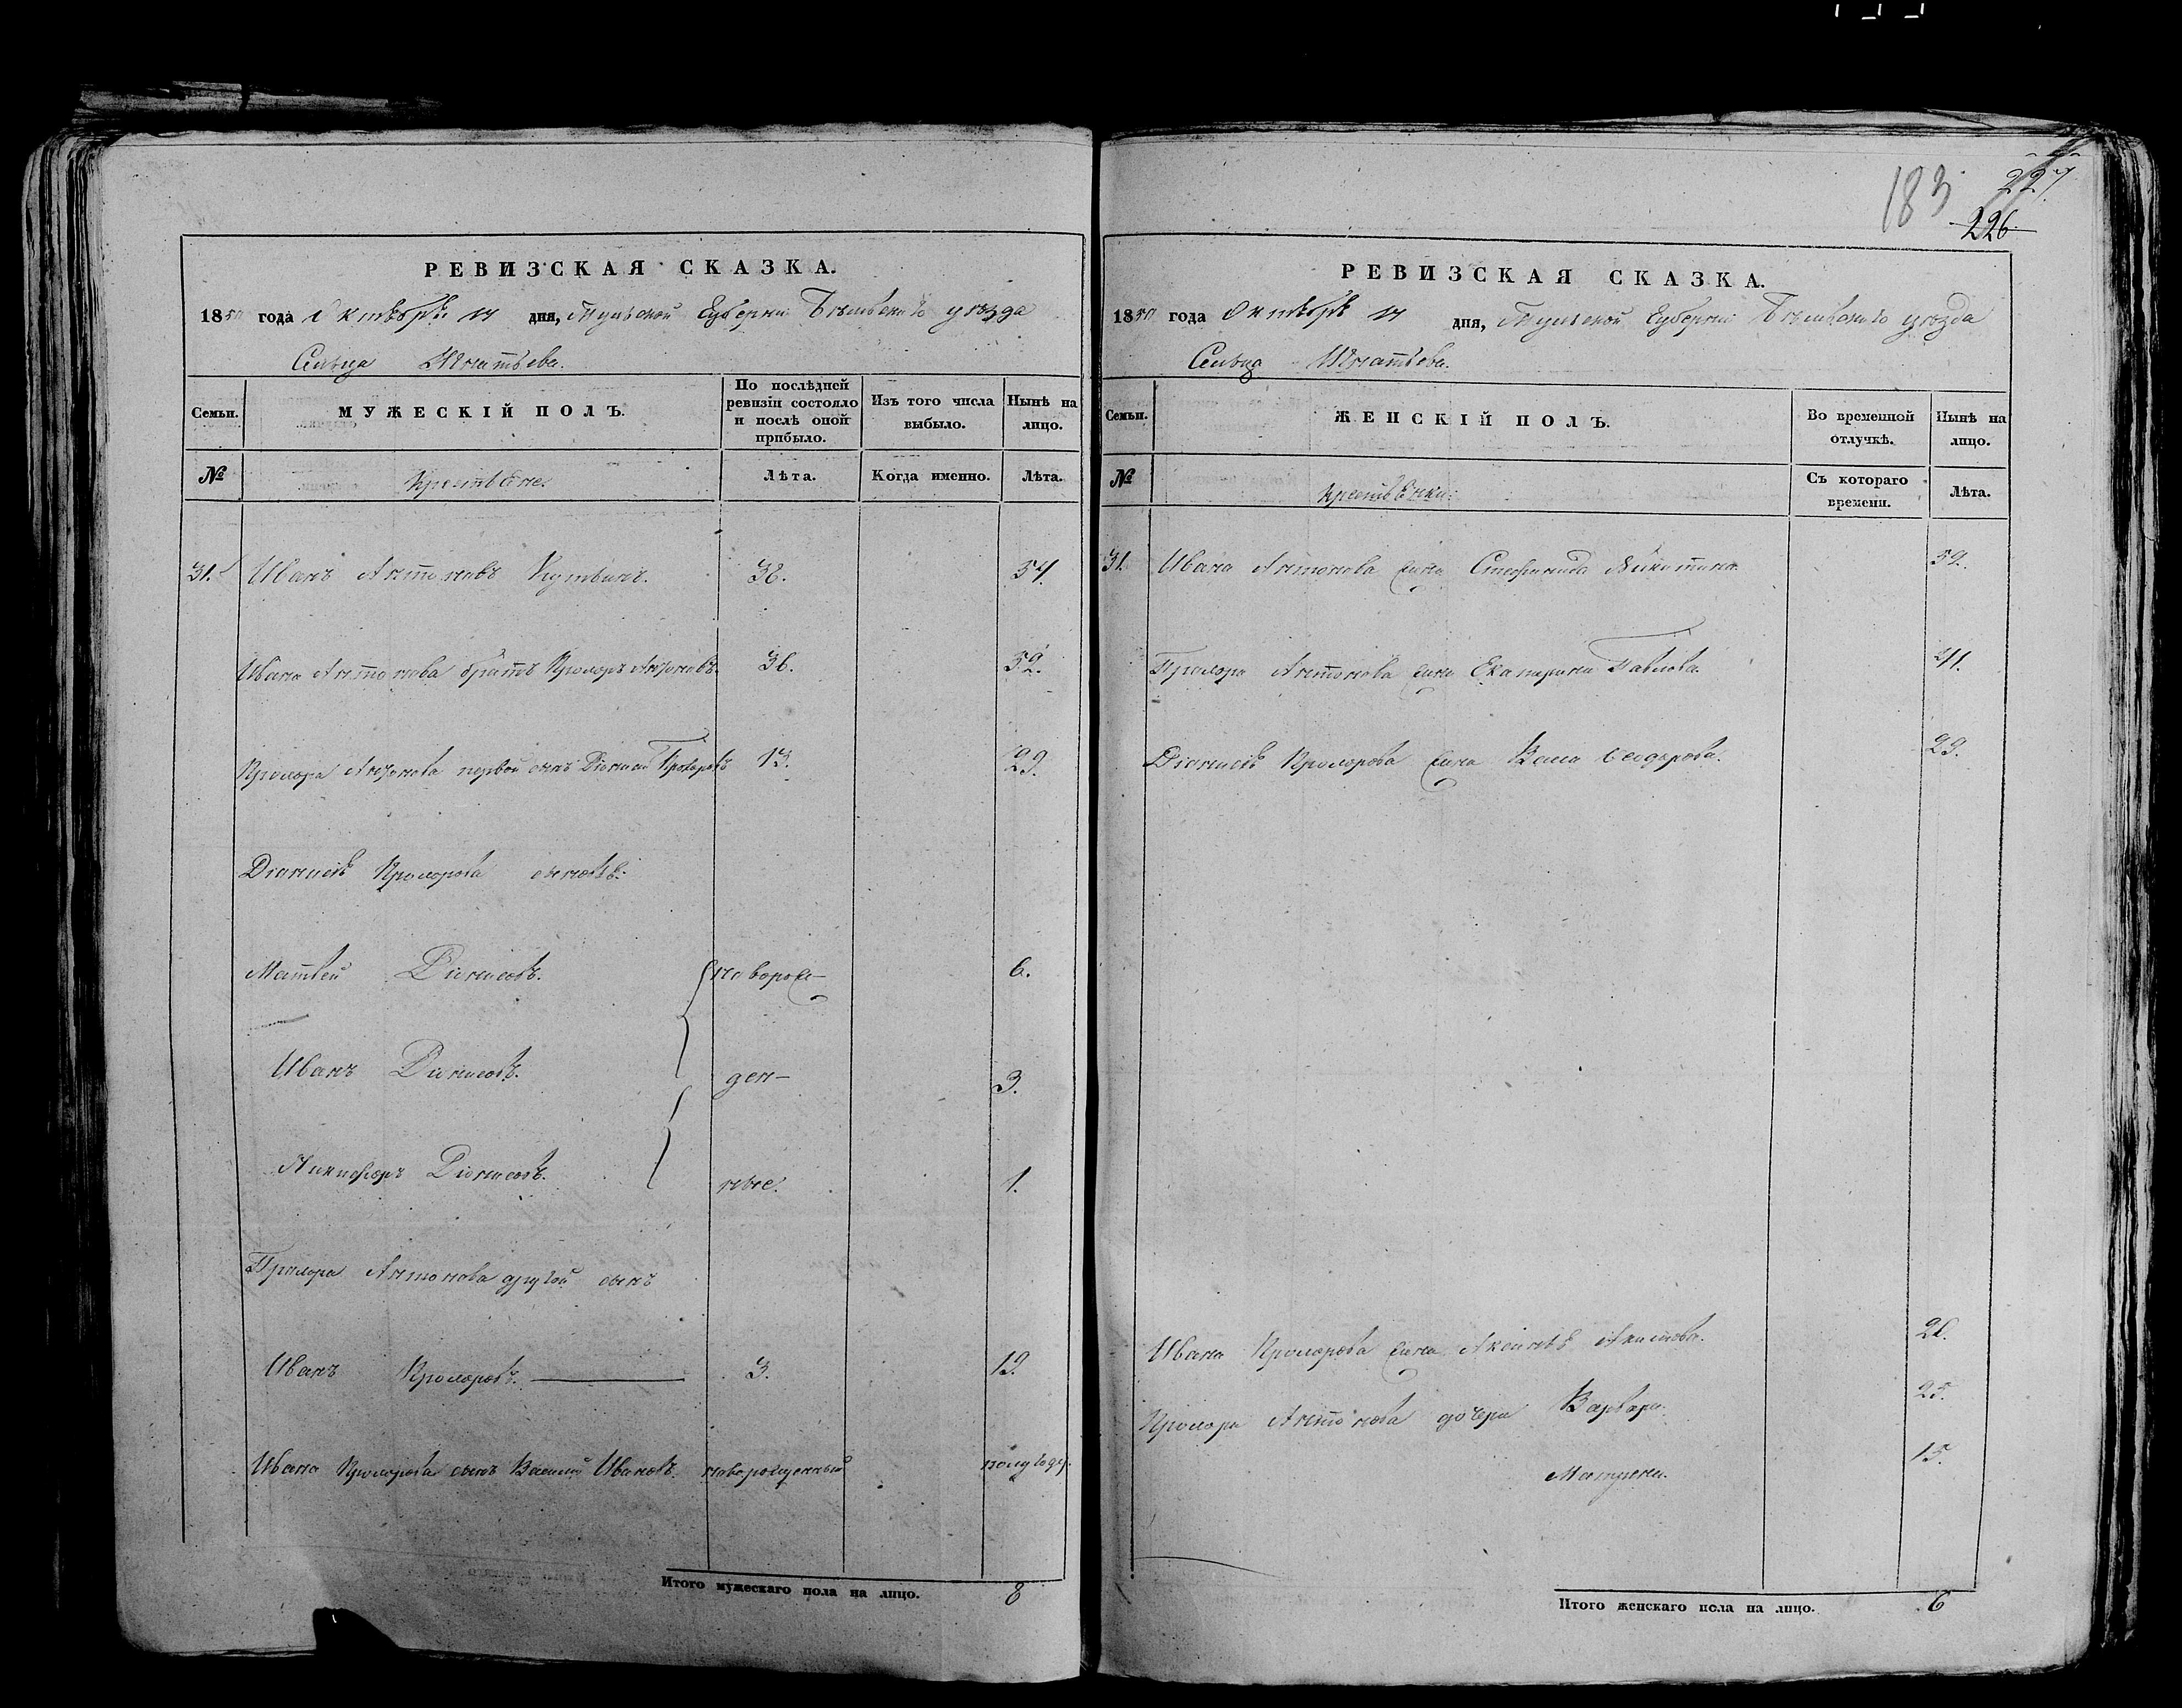 183
227
226
РЕВИЗСКАЯ СКАЗКА.
1850 года Октября 14 дня, Тульской Губерніи Бѣлевскаго уѣзда
Сельца Игнатьева.
Семьи.
МУЖЕСКІЙ ПОЛЪ.
По послѣдней ревизіи состояло и послѣ оной прибыло.
Изъ того числа выбыло.
Нынѣ на лицо.
№
Крестьяне.
Лѣта.
Когда именно.
Лѣта.
31. Иванъ Антоновъ 38. 54.
Ивана Антонова братъ Прохоръ Антоновъ. 36. 52.
Прохора Антонова первой сынъ Діонисій Прохоровъ 13. 29.
Діонисія Прохорова сыновья:
Матвей Діонисовъ. новорож- 6.
Иванъ Діонисовъ. ден- 3.
Никифоръ Діонисовъ. ные. 1.
Прохора Антонова другой сынъ
Иванъ Прохоровъ. 3. 19.
Ивана Прохорова сынъ Василий Ивановъ. новорожденный полугоду.
Итого мужескаго пола на лицо. 8
РЕВИЗСКАЯ СКАЗКА.
1850 года Октября 14 дня, Тульской Губерніи Бѣлевскаго уѣзда
Сельца Игнатьева.
Семьи.
ЖЕНСКІЙ ПОЛЪ.
Во временной отлучкѣ.
Нынѣ на лицо.
№
Крестьянки:
Съ котораго времени.
Лѣта.
31. Ивана Антонова жена Стефанида Никитина. 59.
Прохора Антонова жена Екатерина Павлова. 41.
Діонисія Прохорова жена Ѳеодорова. 29.
Ивана Прохорова жена Аксинья
Прохора Антонова дочери Варвара. 25.
Матрена. 15.
Итого женскаго пола на лицо. 6